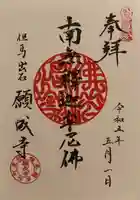 奉拝
令和五年
五月一日
南無釈迦牟尼佛
但馬出石
願成寺